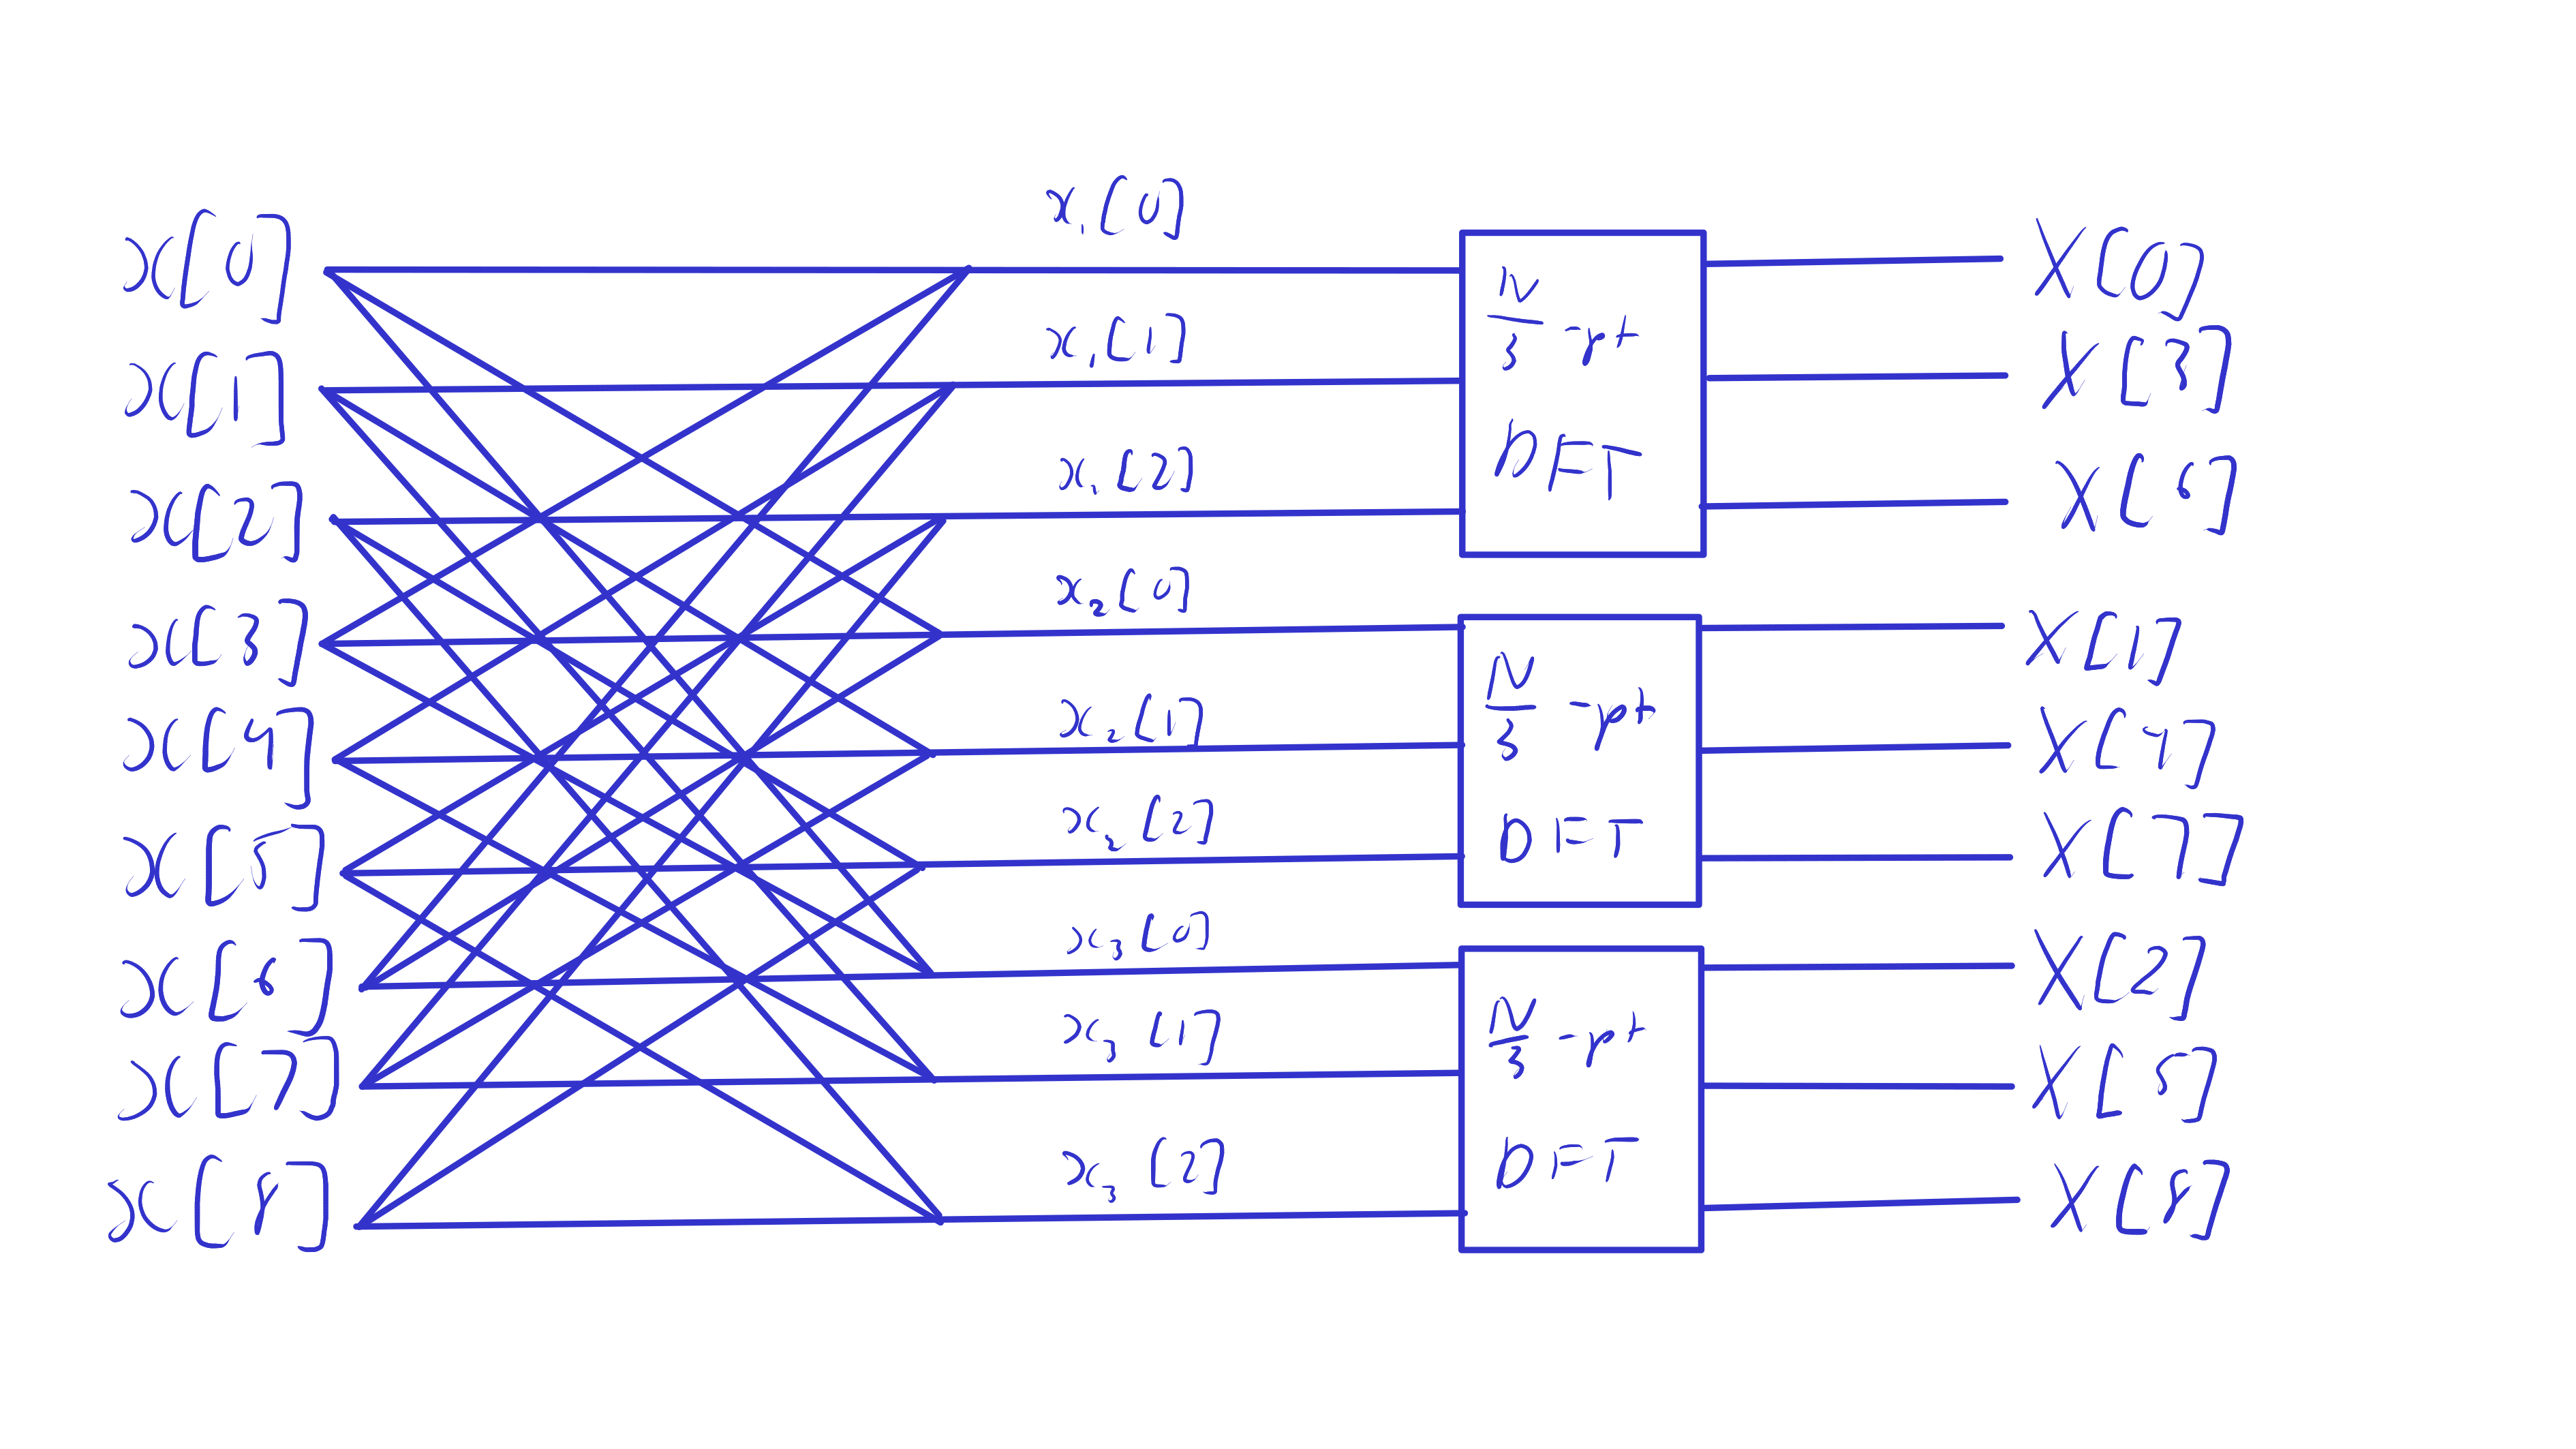 x[0]
x[1]
x[2]
x[3]
x[4]
x[5]
x[6]
x[7]
x[8]
x₁[0]
x₁[1]
x₁[2]
x₂[0]
x₂[1]
x₂[2]
x₃[0]
x₃[1]
x₃[2]
N/3 -pt
DFT
N/3 -pt
DFT
N/3 -pt
DFT
X[0]
X[3]
X[6]
X[1]
X[4]
X[7]
X[2]
X[5]
X[8]